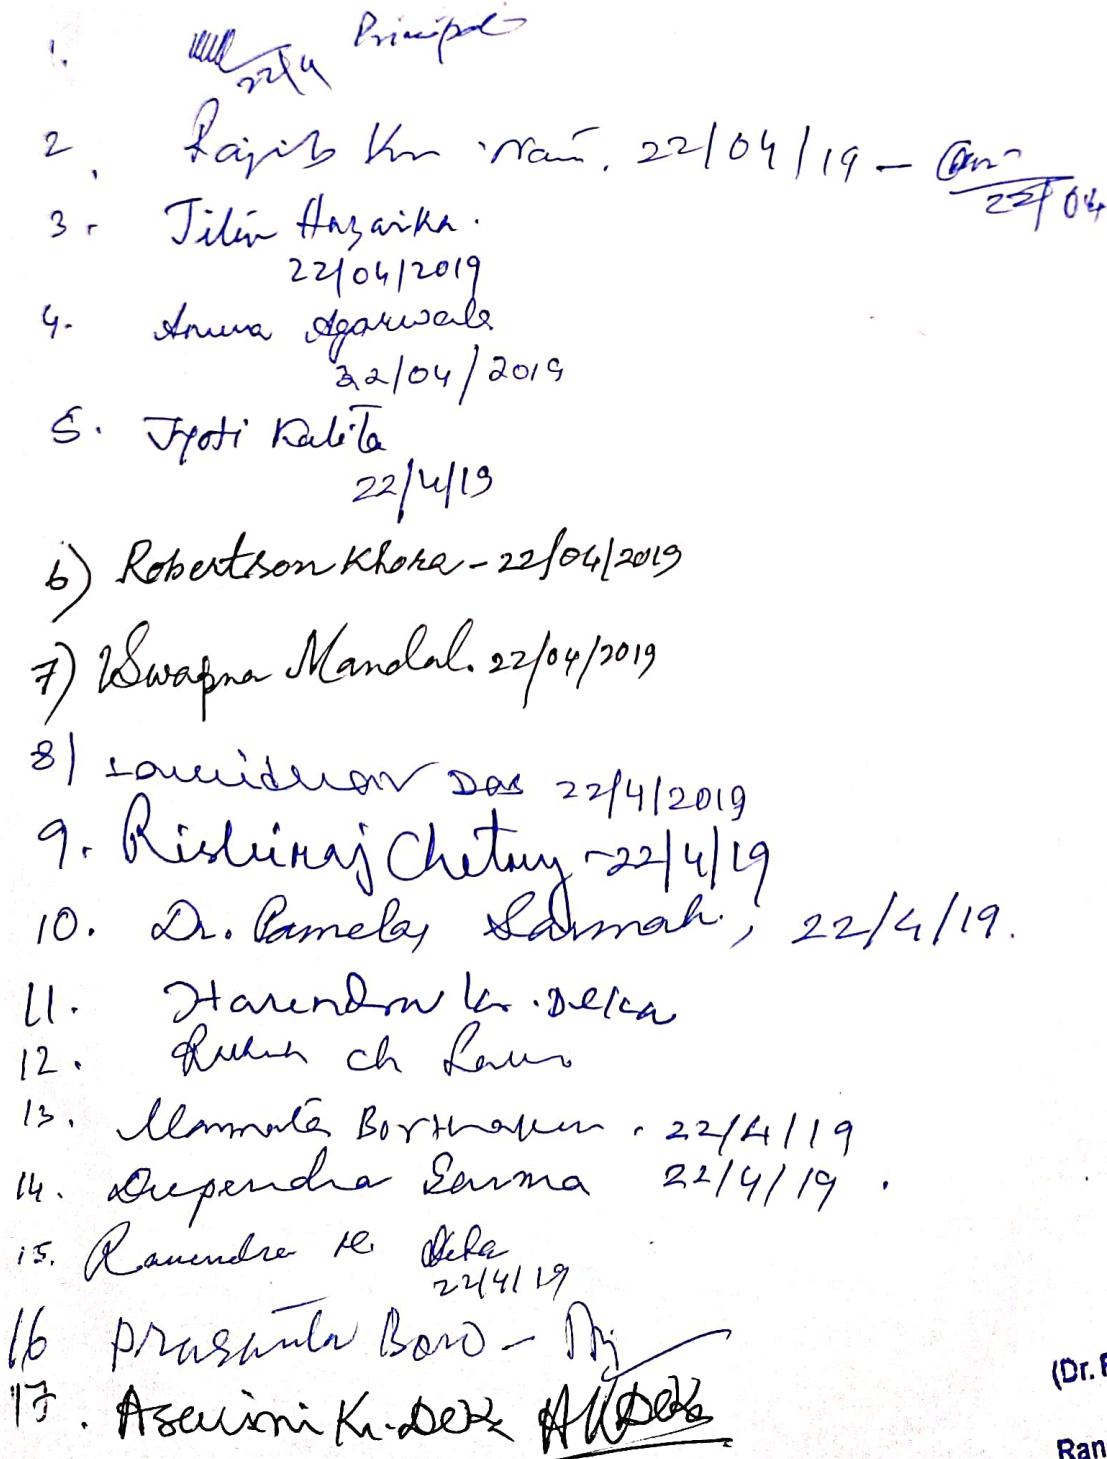 1. 22/4 Principal
2. Rajib Kr Nath. 22/04/19 -
22/04
3. Jitin Hazarika.
22/04/2019
4. Agarwala
22/04/2019
5. Jyoti Kalita
22/4/19
6) Robertson Khora - 22/04/2019
7) Swapna Mandal. 22/04/2019
8) Das 22/4/2019
9. Rishiraj Chetry - 22/4/19
10. Dr. Pamela Sarmah, 22/4/19.
11. Harendra Kr. Deka
12. ch
13. Mamata Borthakur. 22/4/19
14. Dupendra Sarma 22/4/19.
15. Ramendra Deka
22/4/19
16 Prasanta Boro -
17. Aswini Kr. Deka AKDeka
(Dr.
Ran